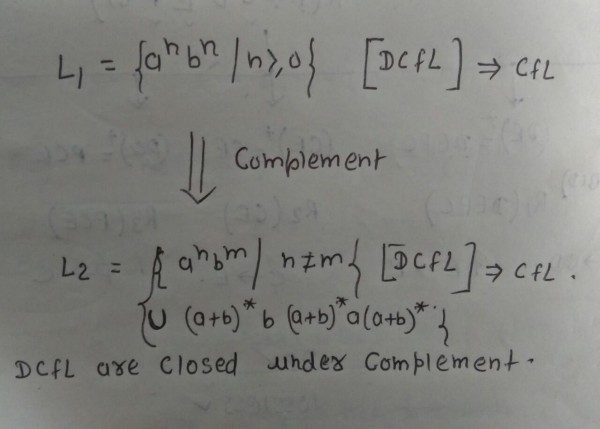 L₁ = {aⁿbⁿ | n≥0} [DCFL] ⇒ CFL
⇓ Complement
L₂ = { aⁿbᵐ | n≠m } [DCFL] ⇒ CFL .
{ ∪ (a+b)* b (a+b)* a(a+b)* }
DCFL are closed under Complement.